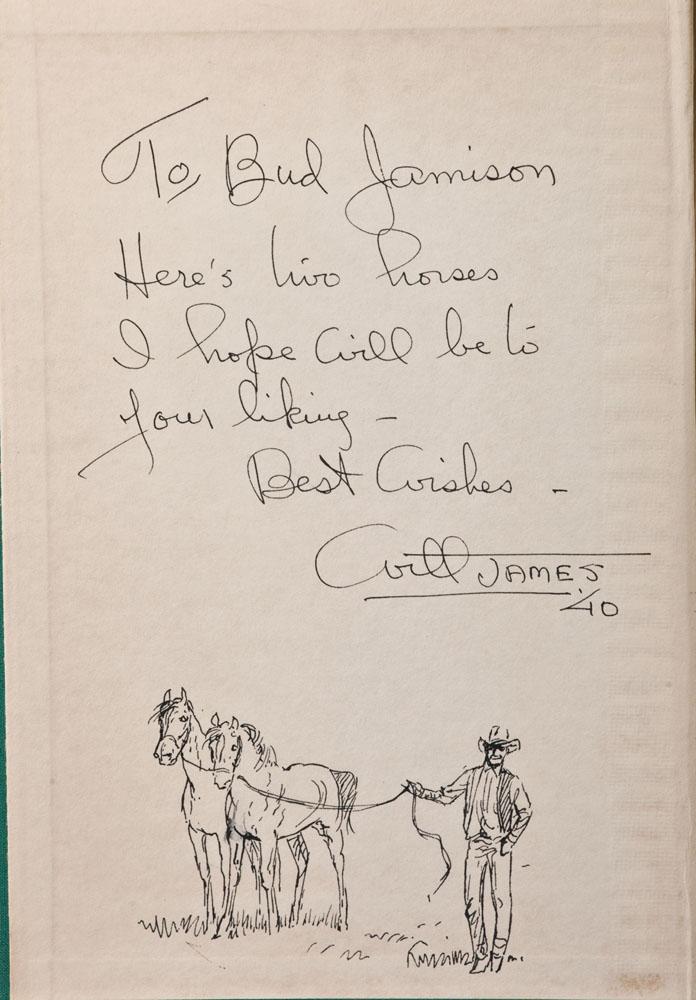 To, Bud Jamison
Here's two horses
I hope will be to
your liking –
Best Wishes –
Will JAMES
'40